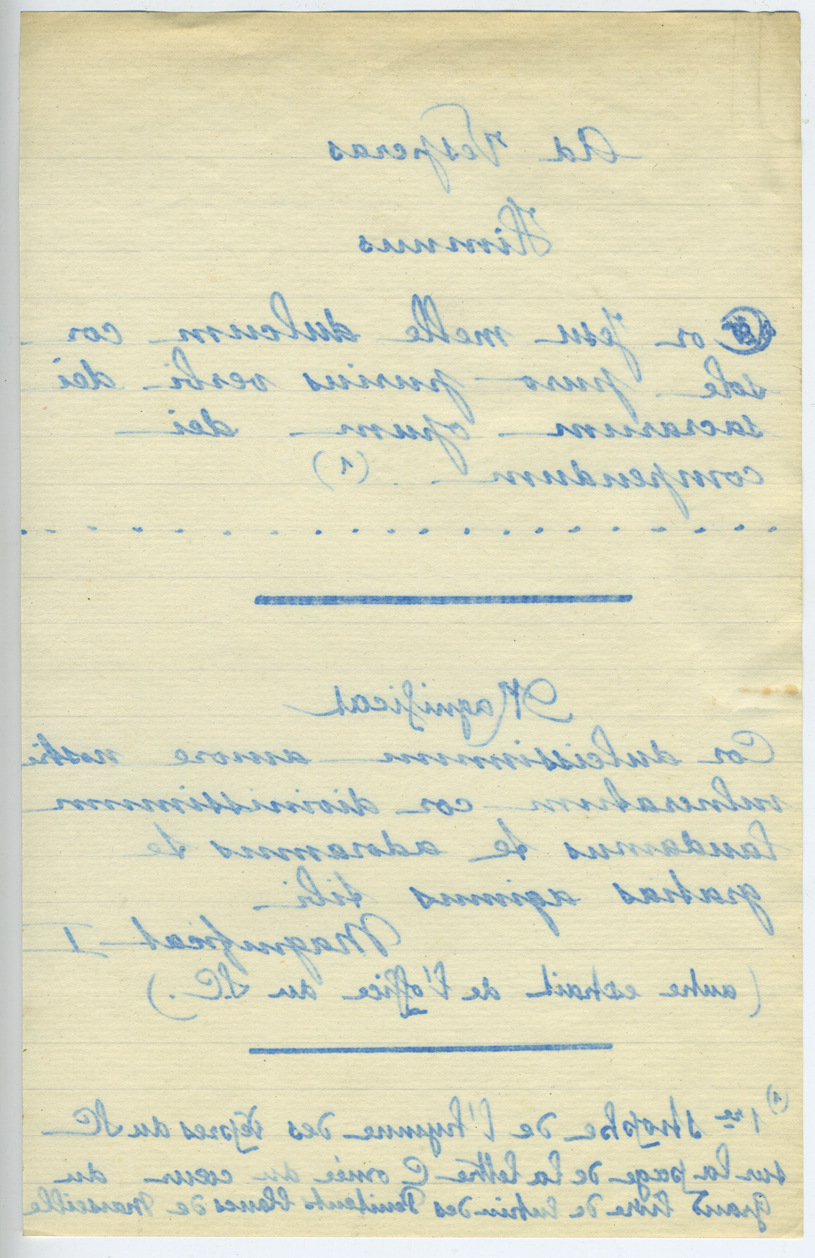 Ad Vesperas
Himnus
Cor Jesu melle dulcium cor
sole puro purius verbi dei
sacrarum opum dei
compendum (1)
Magnificat
Cor dulcissimum amore nostri
vulneratum cor divinissimum
laudamus te adoramus te
gratias agimus tibi
Magnificat I
(autre extrait de l'office du SC.)
(1) 1re strophe de l'hymne des vêpres du SC
sur la page de la lettre C ornée du cœur du
Grand livre de lutrin des Pénitents blancs de Marseille